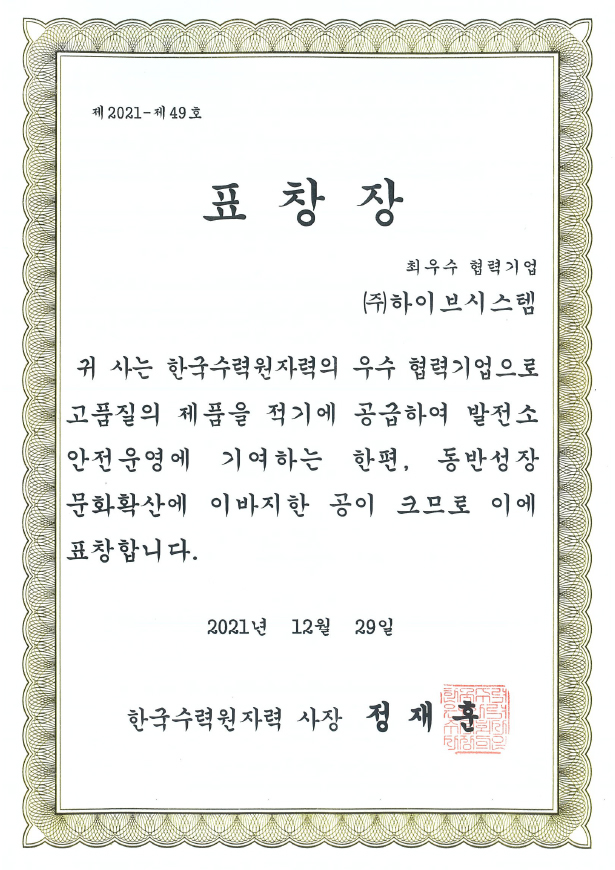 제2021-제49호
표 창 장
최우수 협력기업
㈜하이브시스템
귀 사는 한국수력원자력의 우수 협력기업으로
고품질의 제품을 적기에 공급하여 발전소
안전운영에 기여하는 한편, 동반성장
문화확산에 이바지한 공이 크므로 이에
표창합니다.
2021년 12월 29일
한국수력원자력 사장 정 재 훈